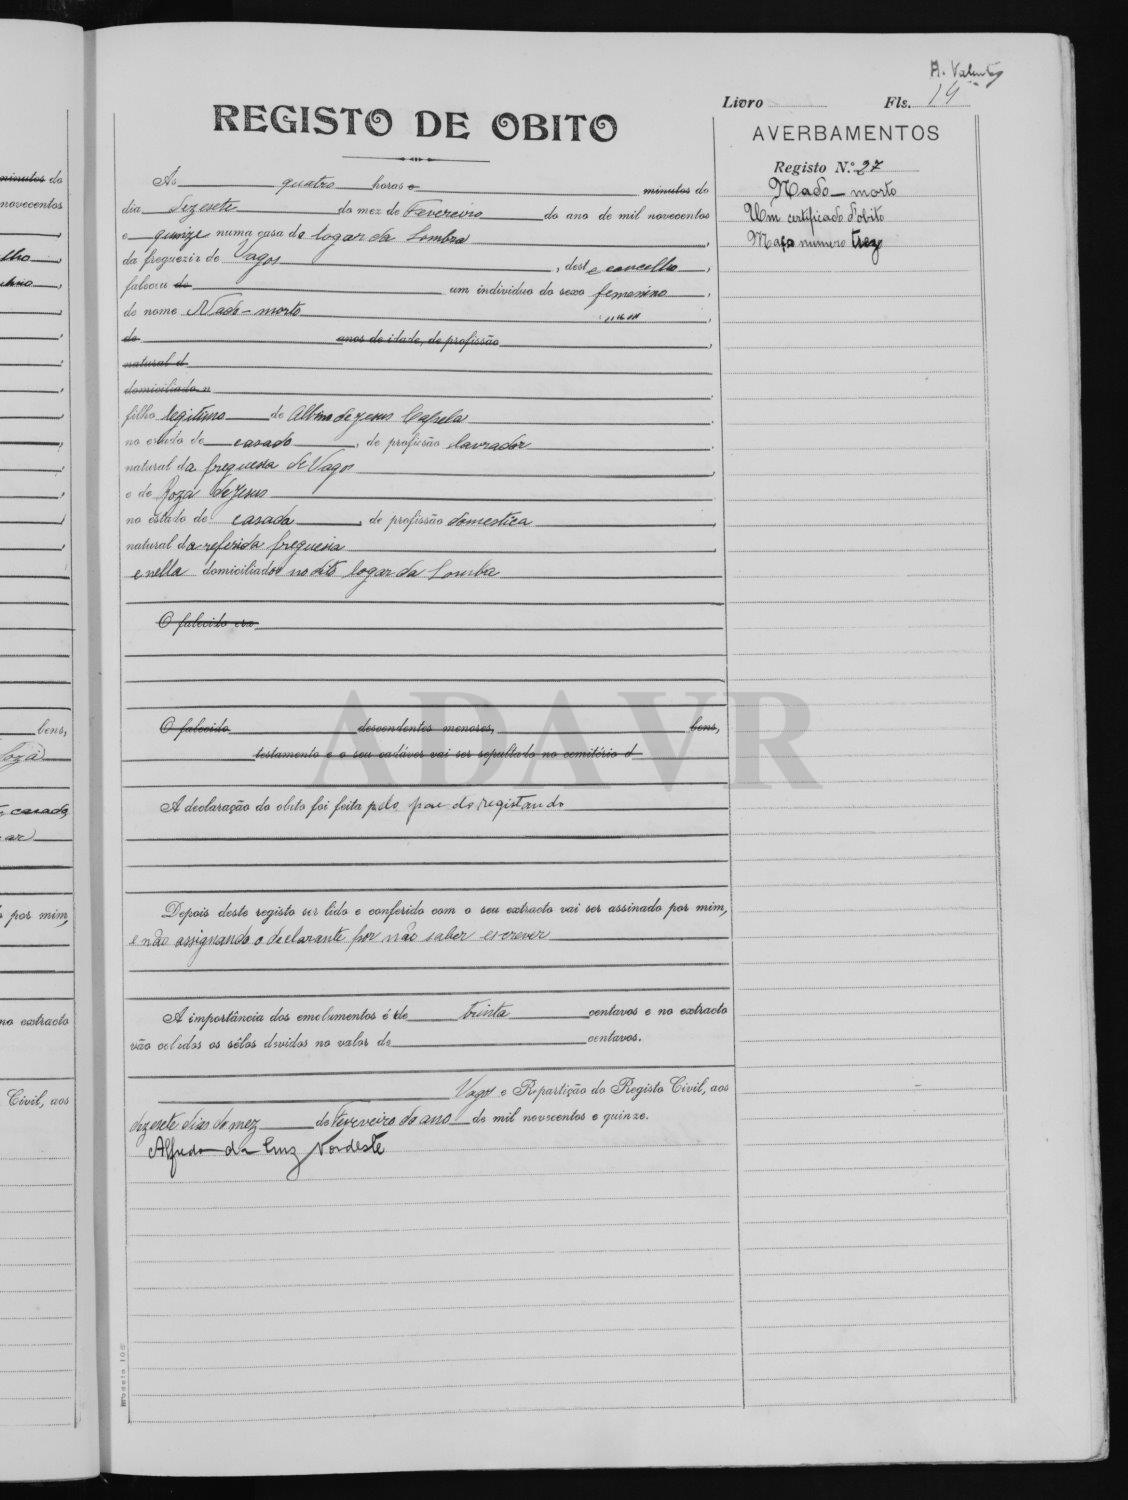 A. Valente
Livro Fls. 14
REGISTO DE OBITO
AVERBAMENTOS
Registo N.º 27
Nado-morto
Um certificado d'obito
Maço numero trez
minutos do
novecentos
As quatro horas e minutos do
dia dezesete do mez de Fevereiro do ano de mil novecentos
e quinze numa casa do logar da Lomba
da freguezia de Vagos, deste concelho,
faleceu de um individuo do sexo femenino,
de nome Nado-morto,
de anos de idade, de profissão,
natural d
domiciliado n
filho legitimo de Albino de Jesus Capela
no estado de casado, de profissão lavrador
natural da freguesia de Vagos
e de Roza de Jesus
no estado de casada, de profissão domestica
natural da referida freguesia
e nella domiciliados no dito logar da Lomba
O falecido era
O falecido descendentes menores, bens,
testamento e o seu cadáver vai ser sepultado no cemitério d
A declaração do obito foi feita pelo pae do registando
Depois deste registo ser lido e conferido com o seu extracto vai ser assinado por mim,
e não assignando o declarante por não saber escrever
A importância dos emolumentos é de trinta centavos e no extracto
vão colados os sêlos devidos no valor de centavos.
Vagos e Repartição do Registo Civil, aos
dezesete dias do mez de Fevereiro do ano de mil novecentos e quinze.
Alfredo da Cruz Nordeste
bens,
casado
por mim,
no extracto
Civil, aos
Modelo 105
ADAVR